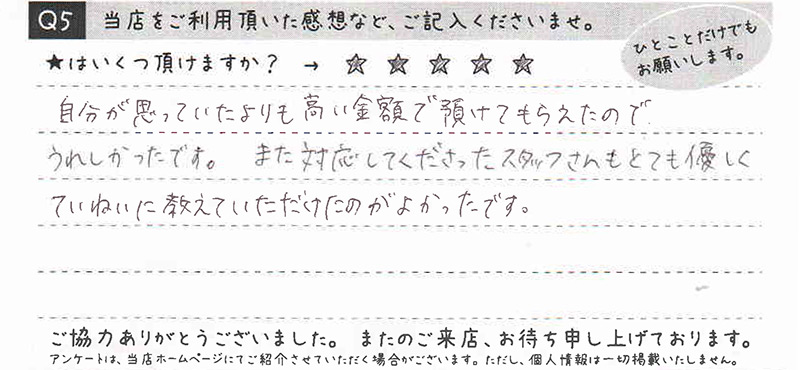 Q5 当店をご利用頂いた感想など、ご記入くださいませ。
★はいくつ頂けますか？ → ☆ ☆ ☆ ☆ ☆
ひとことだけでも
お願いします。
自分が思っていたよりも高い金額で預けてもらえたので
うれしかったです。 また対応してくださったスタッフさんもとても優しく
ていねいに教えていただけたのがよかったです。
ご協力ありがとうございました。 またのご来店、お待ち申し上げております。
アンケートは、当店ホームページにてご紹介させていただく場合がございます。ただし、個人情報は一切掲載いたしません。